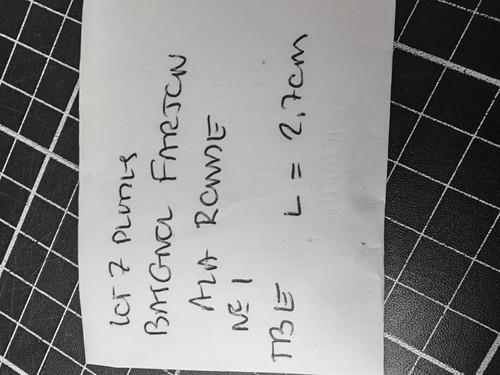 LOT 7 PLUMES
BAIGNOL FARJON
AZA RONDE
N° 1
TBE L = 2,7cm